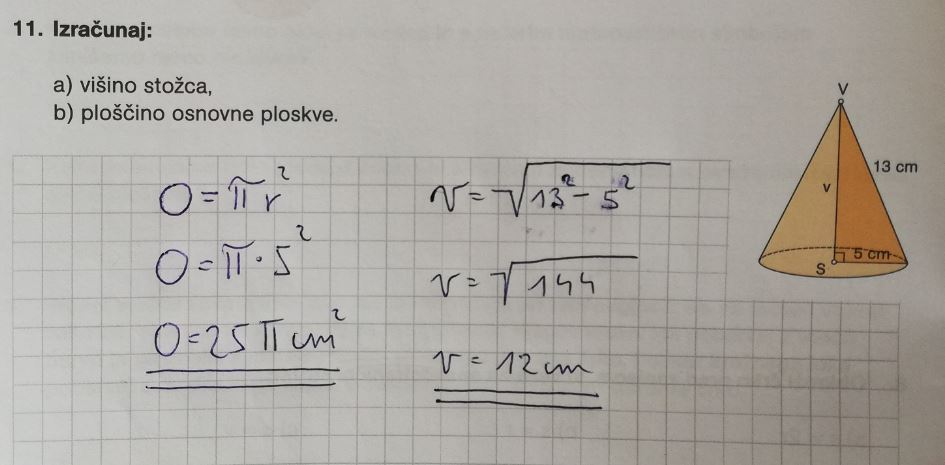 11. Izračunaj:
a) višino stožca,
b) ploščino osnovne ploskve.
O = πr²
O = π · 5²
O = 25 π cm²
v = √13² − 5²
v = √144
v = 12 cm
V
13 cm
v
5 cm
S